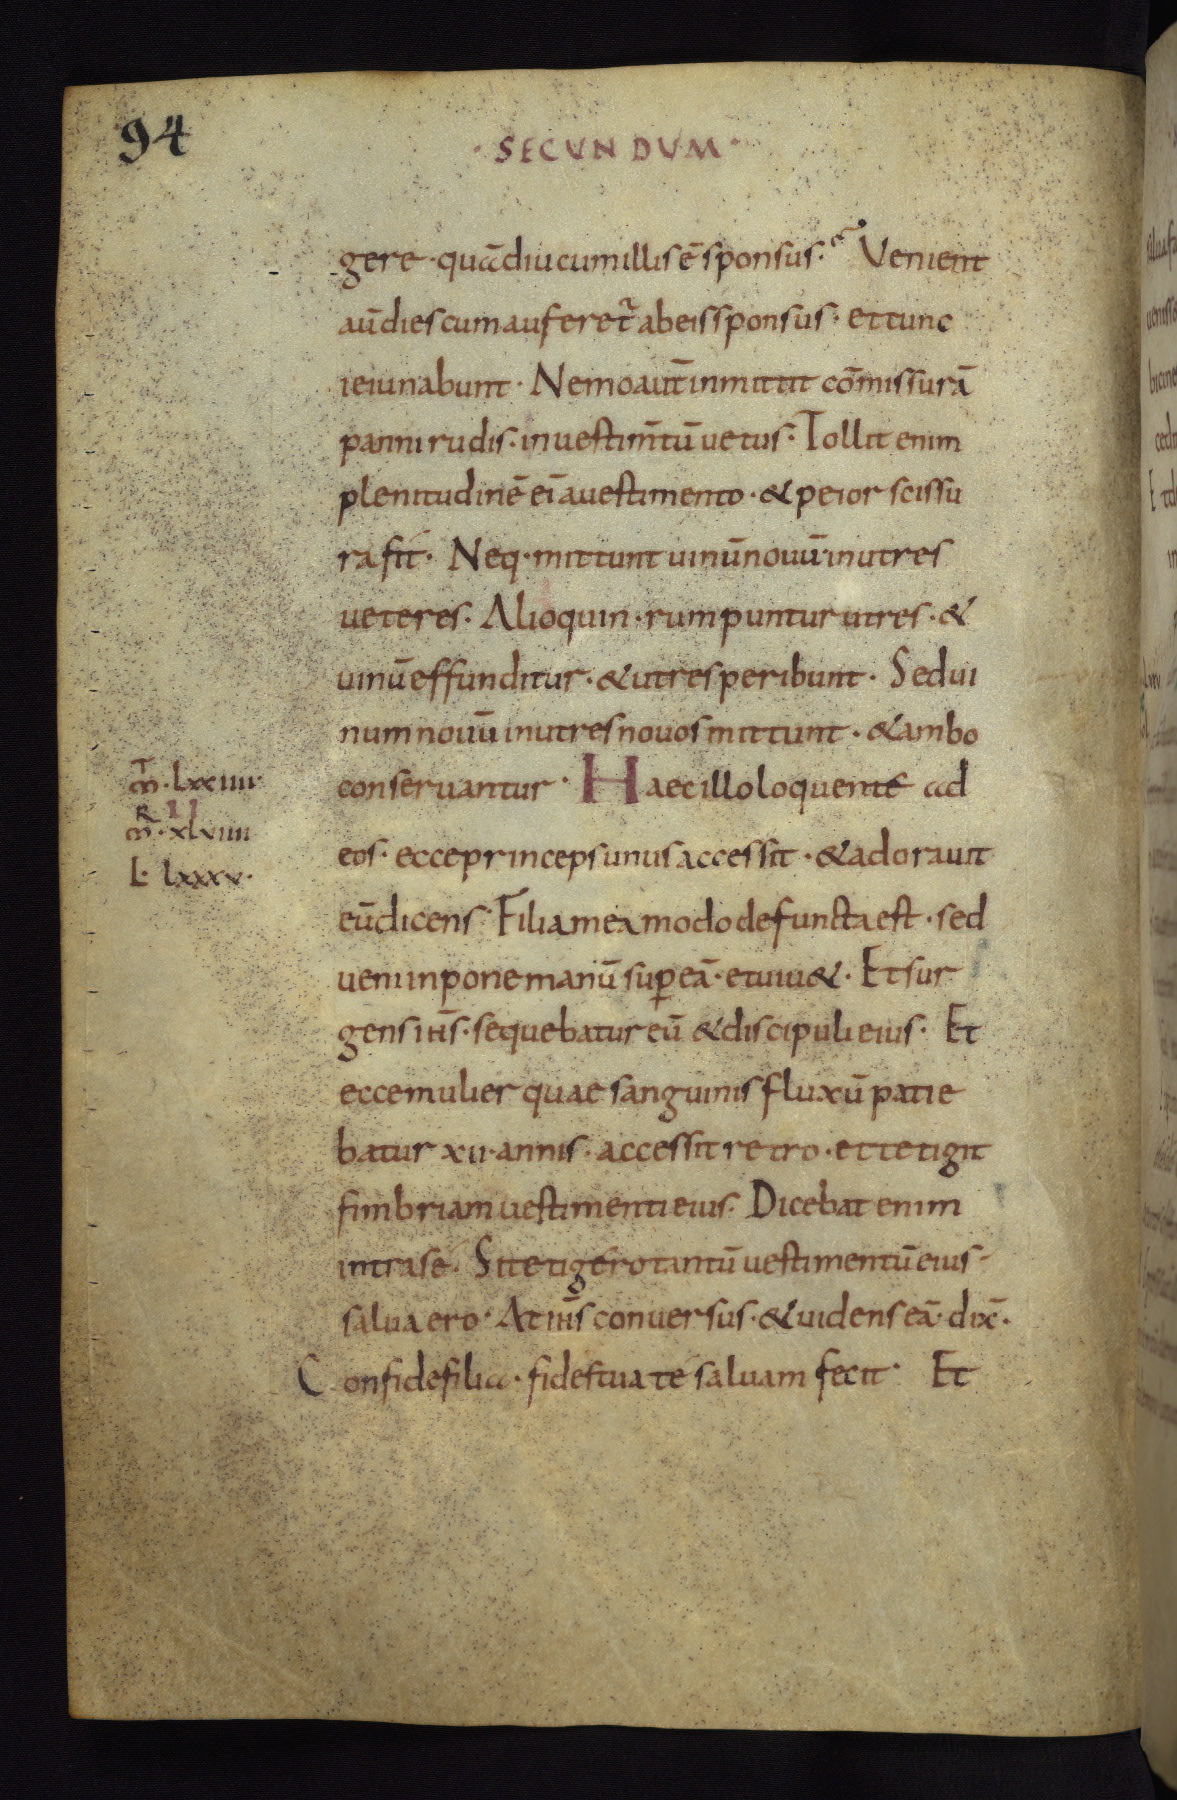 94
· SECUNDUM ·
gere · quādiu cum illis ē sponsus · Venient
aū dies cum auferet̄ ab eis sponsus · et tunc
ieiunabunt · Nemo aūt inmittit cōmissurā
panni rudis · in uestim̄tū uetus · Tollit enim
plenitudinē ei̅ a uestimento · & peior scissu
ra fit · Neq · mittunt uinū nouū in utres
ueteres · Alioquin · rumpuntur utres · &
uinū effunditur · & utres peribunt · Sed ui
num nouū in utres nouos mittunt · & ambo
m̅ · Lxxiiii ·
conseruantur · Haec illo loquente ad
m̅ · xLviiii
eos · ecce princeps unus accessit · & adorauit
L · Lxxxv ·
eū dicens · Filia mea modo defuncta est · sed
ueni inpone manū suꝑ eā · et uiu& · Et sur
gens ih̄s · sequebatur eū & discipuli eius · Et
ecce mulier quae sanguinis fluxū patie
batur xii · annis · accessit retro · et tetigit
fimbriam uestimenti eius · Dicebat enim
intra se · Si tetigero tantū uestimentū eius
salua ero · At ih̄s conuersus · & uidens eā · dix̄ ·
Confide filia · fides tua te saluam fecit · Et